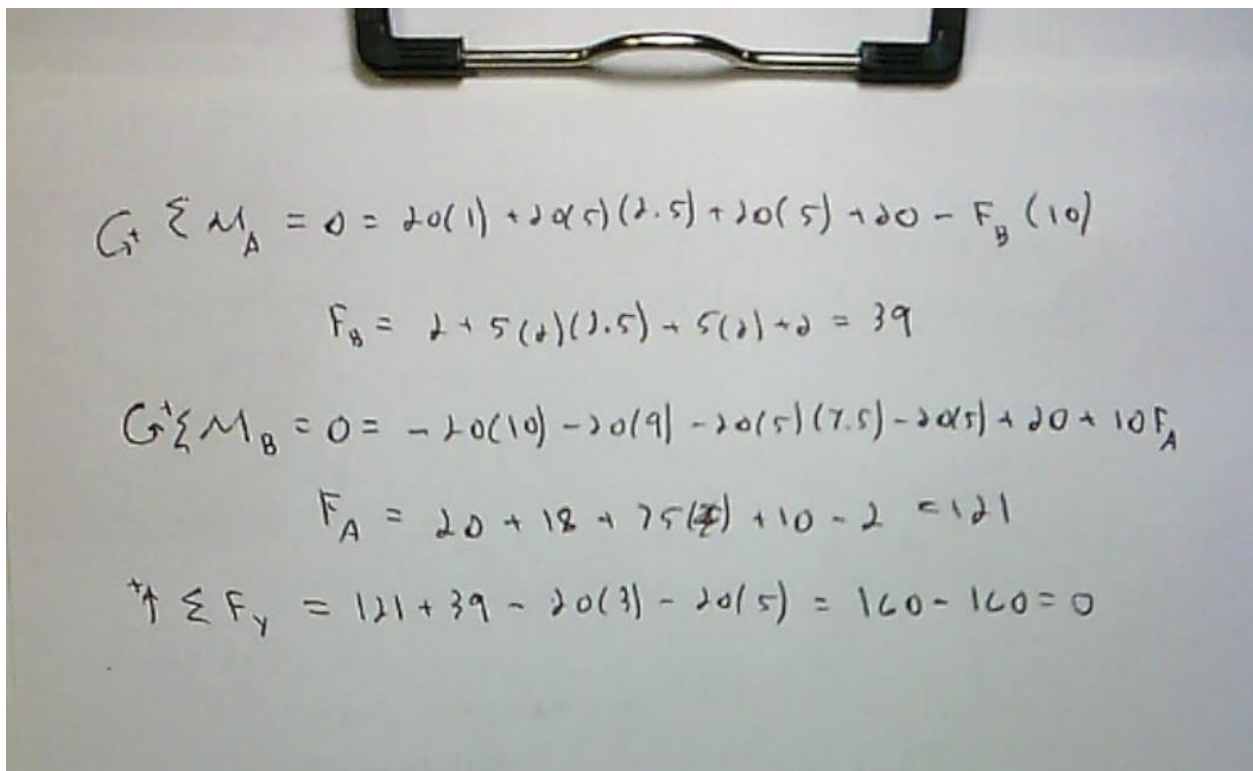 ↻+ Σ M_A = 0 = 20(1) + 20(5)(2.5) + 20(5) + 20 - F_B (10)
F_B = 2 + 5(2)(2.5) + 5(2) + 2 = 39
↻+ Σ M_B = 0 = - 20(10) - 20(9) - 20(5)(7.5) - 20(5) + 20 + 10F_A
F_A = 20 + 18 + 75() + 10 - 2 = 121
+↑ Σ F_y = 121 + 39 - 20(3) - 20(5) = 160 - 160 = 0